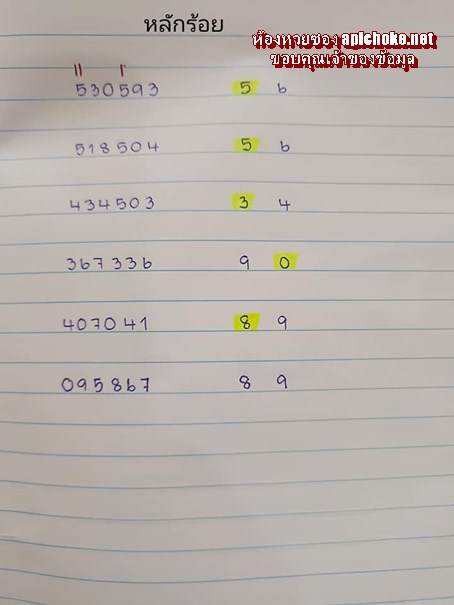 หลักร้อย
ห้องหวยซอง apichoke.net
ขอบคุณเจ้าของข้อมูล
530593 5 6
518504 5 6
434503 3 4
367336 9 0
407041 8 9
095867 8 9